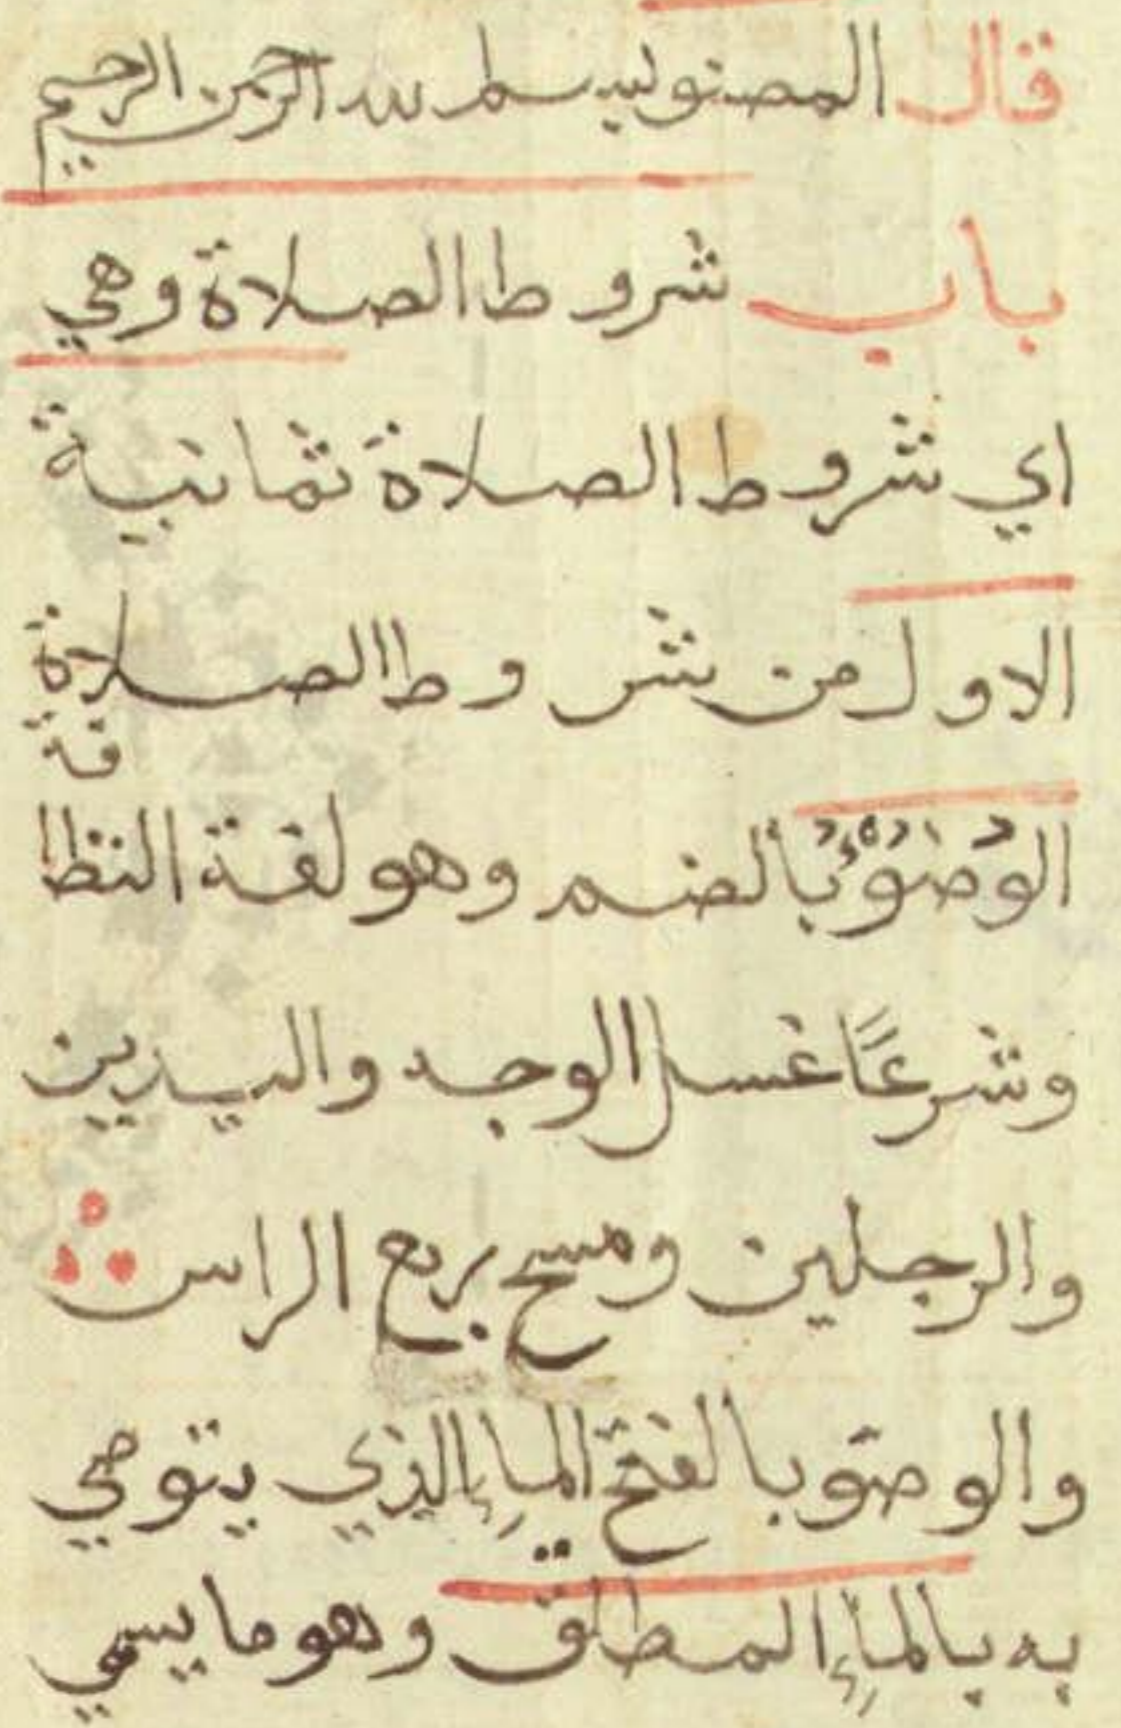 قال المصنف بسم الله الرحمن الرحيم
باب شروط الصلاة وهي
اي شروط الصلاة ثمانية
الاول من شروط الصلاة
الوُضُوُء بالضم وهو لغة النظا
فة
وشرعًا غسل الوجه واليدين
والرجلين ومسح ربع الراس
والوضو بالفتح الماء الذي يتوضي
به بالماء المطلق وهو ما يسمي